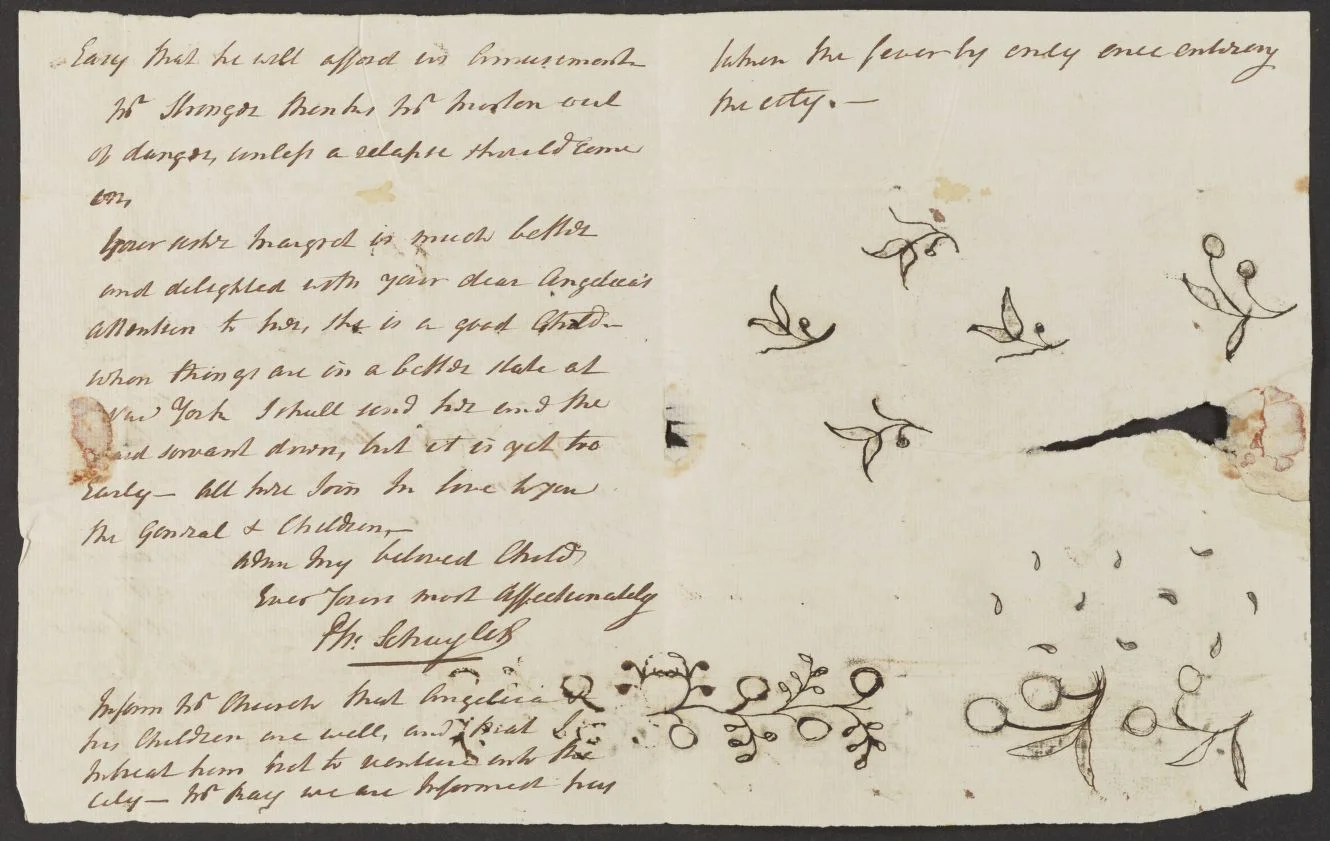 Easy that he will afford us Amusement
Mr Stronger thinks Mr Morton out
of danger, unless a relapse should Come
on,
Your sister Margret is much better
and delighted with your dear Angelica's
attention to her, she is a good Child –
when things are in a better state at
New York I shall send her and the
servant down, but it is yet too
Early – all here Join In love to you
the General & Children, –
Adieu My beloved Child
Ever Yours most Affectionately
Ph: Schuyler
Inform Mr Church that Angelica &
his Children are well, and that I
Intreat him not to venture into the
City – Mr Ray we are Informed has
taken the fever by only once entering
the city. –